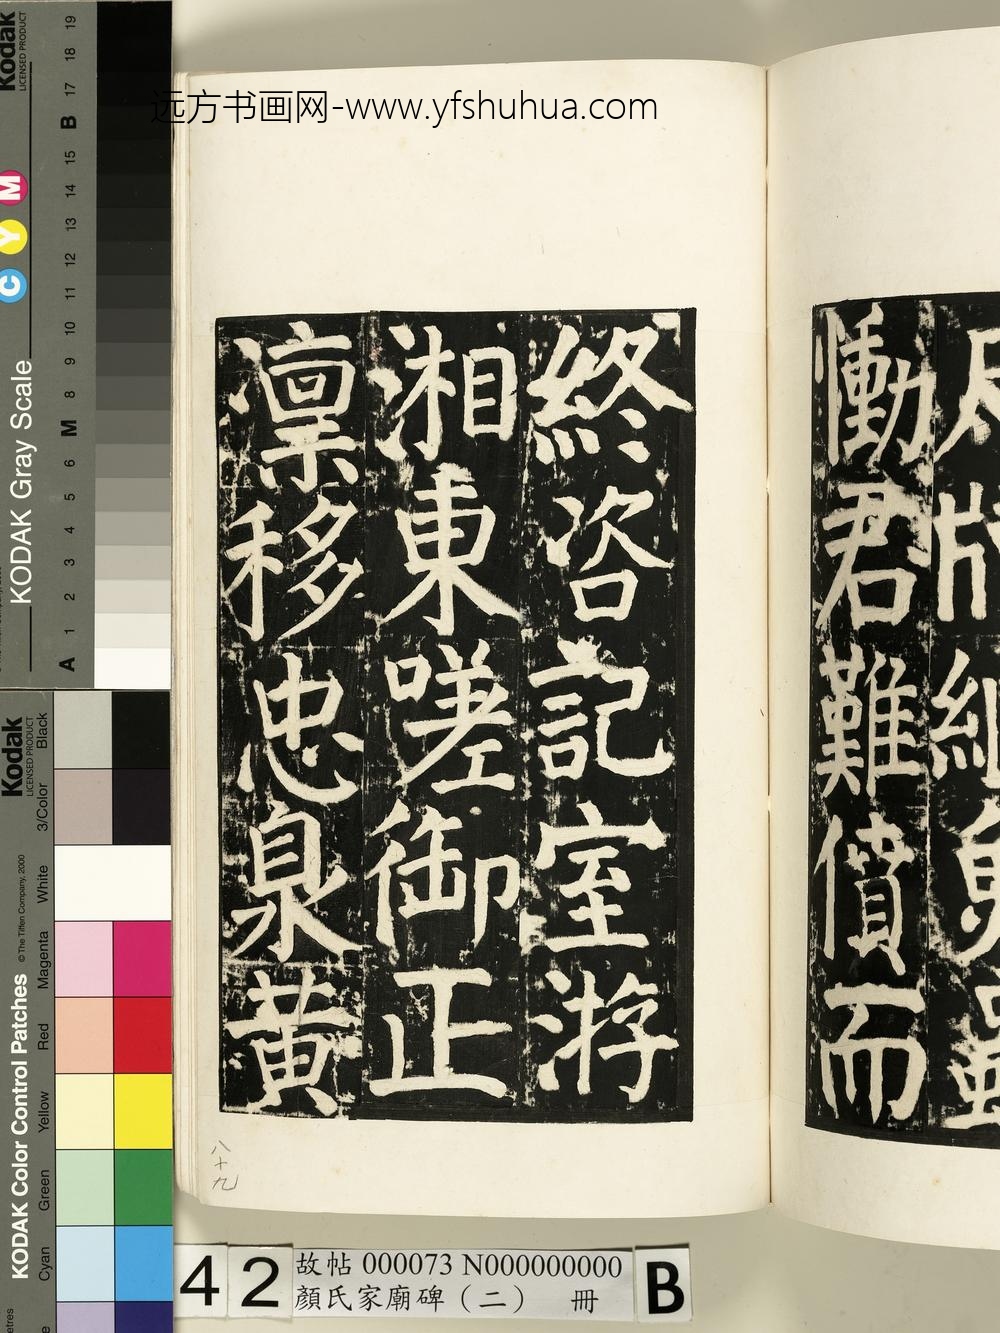 远方书画网-www.yfshuhua.com
慟君難償而
終咨記室游
湘東嗟御正
凛移忠臮黄
八十九
42
故帖 000073 N000000000
顏氏家廟碑（二） 冊
B
Kodak
LICENSED PRODUCT
KODAK Gray Scale
C Y M
A 1 2 3 4 5 6 M 8 9 10 11 12 13 14 15 B 17 18 19
Kodak
LICENSED PRODUCT
KODAK Color Control Patches
© The Tiffen Company, 2000
Cyan Green Yellow Red Magenta White 3/Color Black